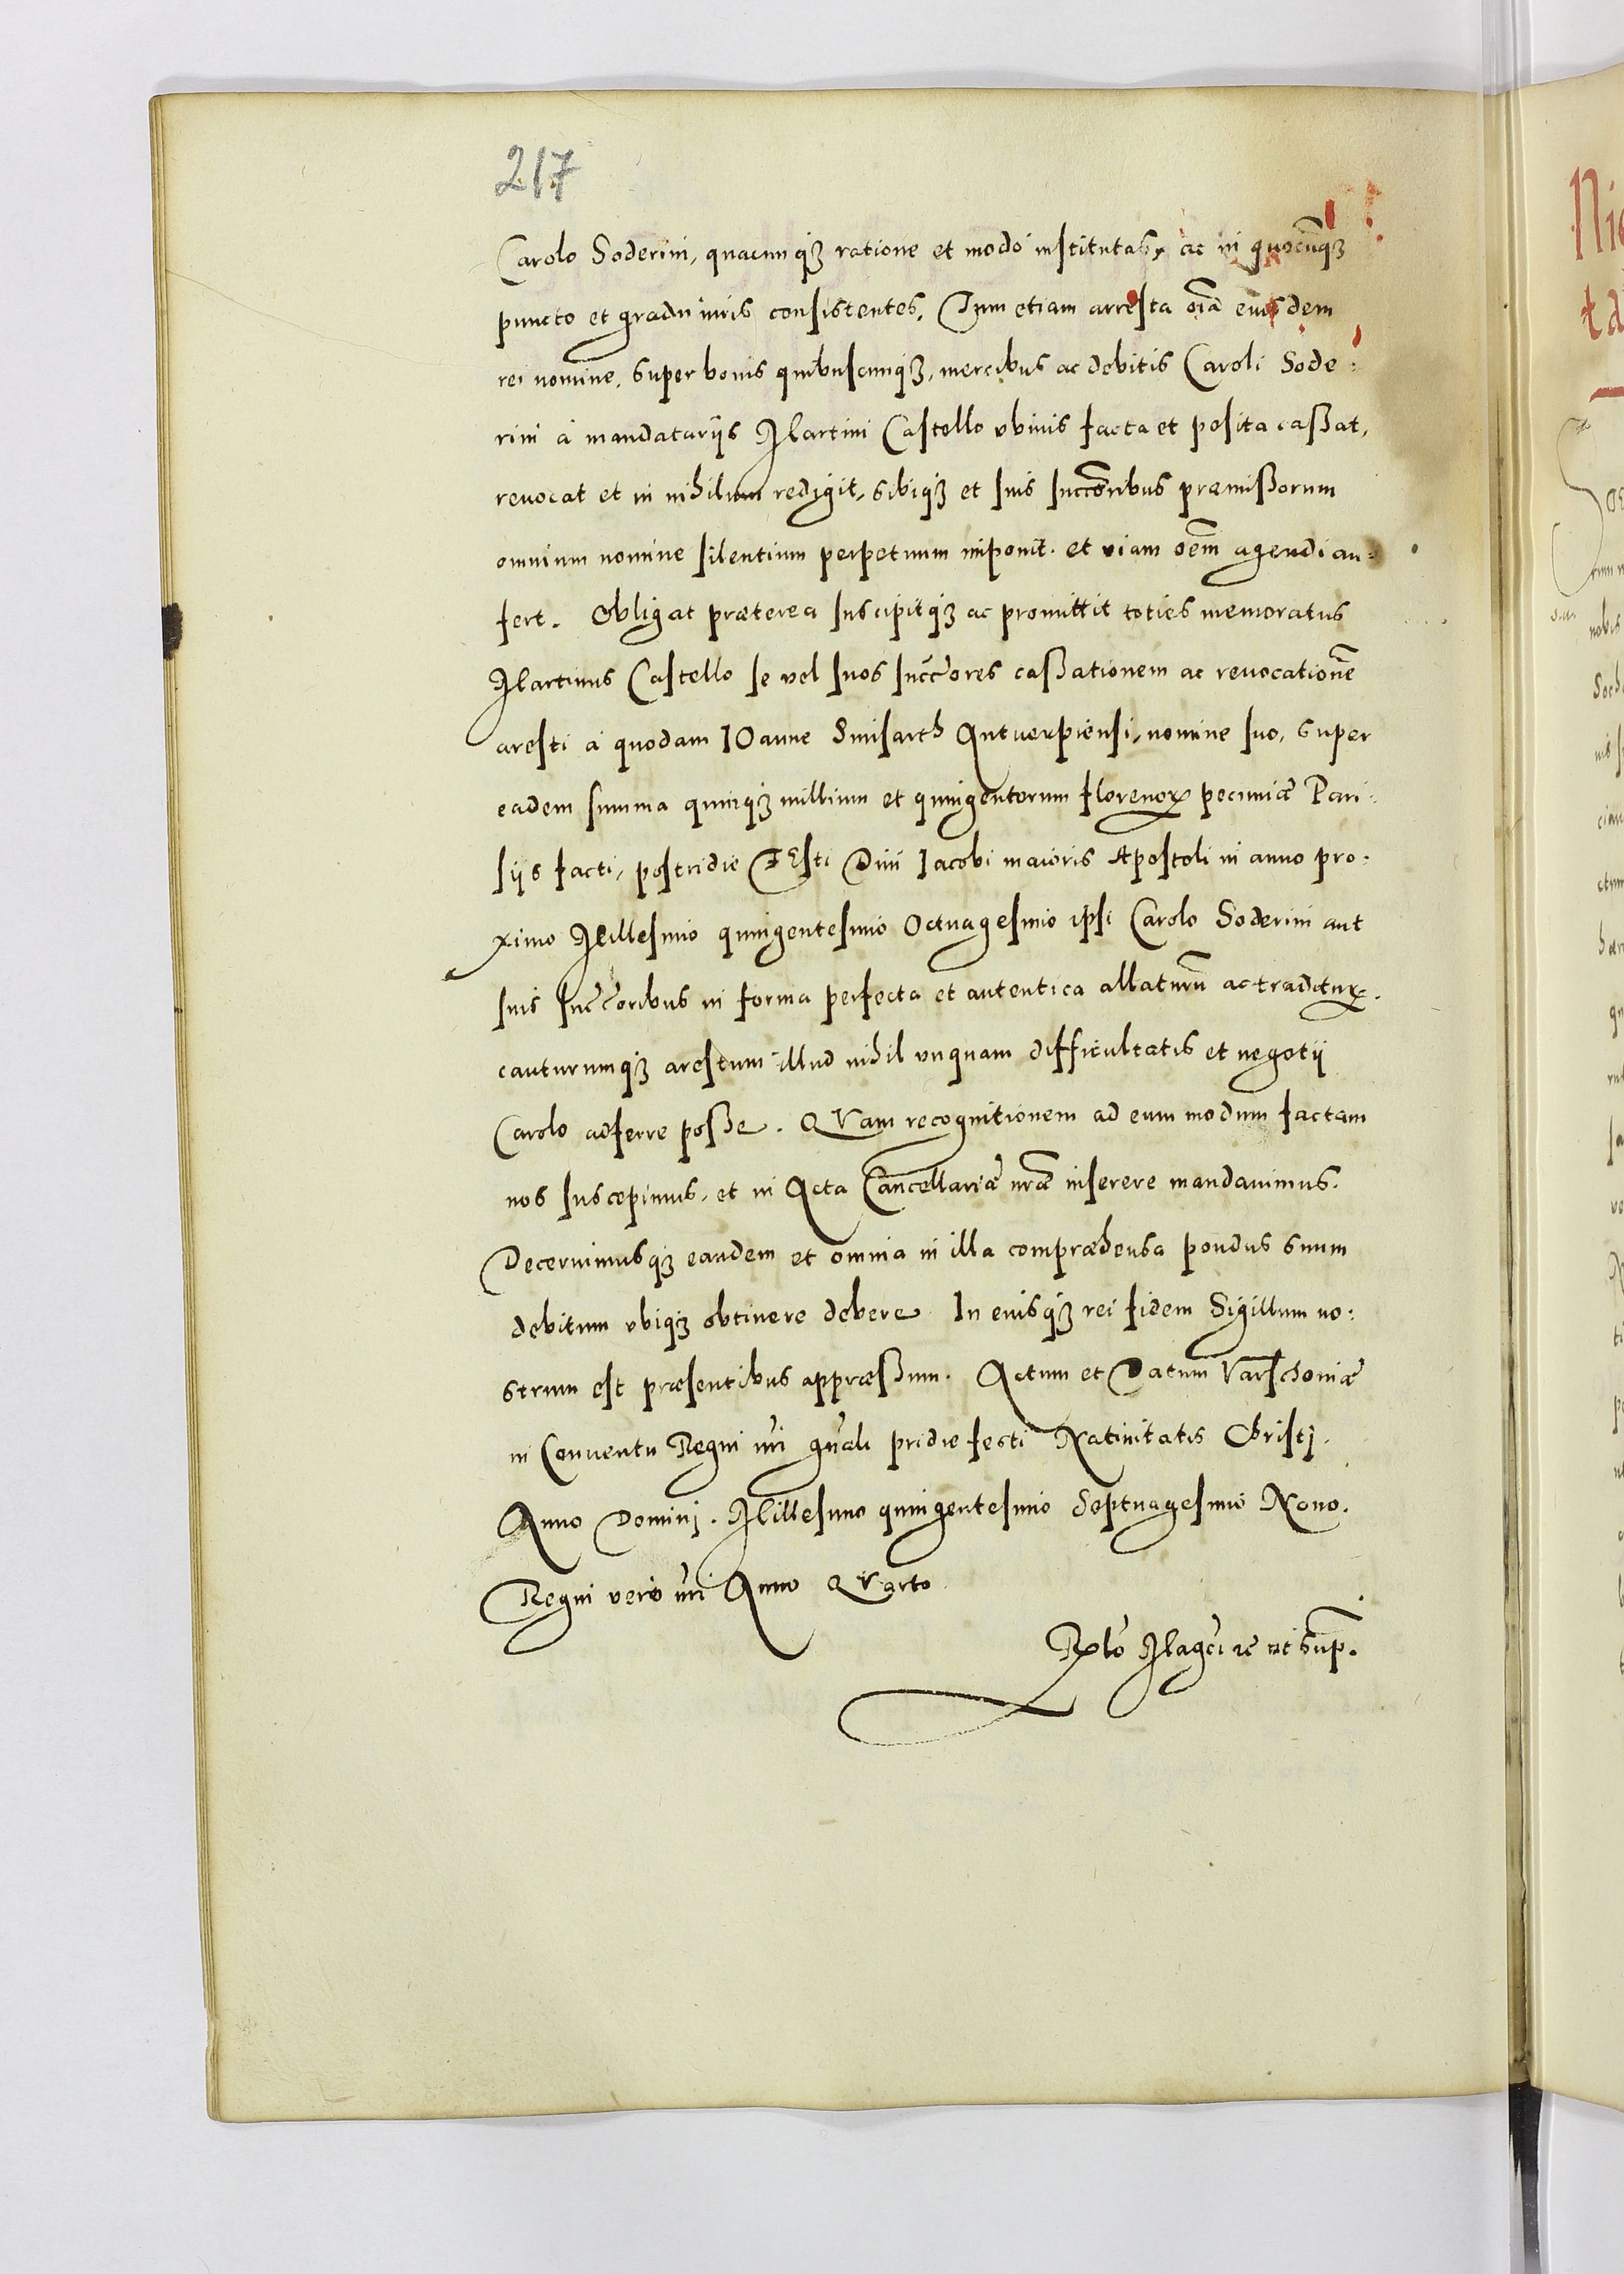 217
Carolo Soderini, quacunq₃ ratione et modo institutas, ac in quocūq₃
puncto et gradu iuris consistentes, Tum etiam arresta oīa eiusdem
rei nomine, super bonis quibuscunq₃, mercibus ac debitis Caroli Sode:
rini à mandatarijs Martini Castello vbiuis facta et posita cassat,
reuocat et in nihilum redigit, sibiq₃ et suis succōribus præmissorum
omnium nomine silentium perpetuum imponit. et viam oēm agendi au:
fert. Obligat præterea suscipitq₃ ac promittit toties memoratus
Martinus Castello se vel suos succōres cassationem ac reuocationē
aresti à quodam IOanne Smisarth Antuerpiensi, nomine suo, super
eadem summa quinq₃ millium et quingentorum florenoꝝ pecuniæ Pari:
sijs facti, postridie FEsti Diui Iacobi maioris Apostoli in anno pro:
ximo Millesimo quingentesimo Octuagesimo ipsi Carolo Soderini aut
suis succōribus in forma perfecta et autentica allaturū ac traditurꝝ.
cauturumq₃ arestum illud nihil vnquam difficultatis et negotij
Carolo adferre posse. QVam recognitionem ad eum modum factam
nos suscepimus, et in Acta Cancellariæ nrae inserere mandauimus.
Decernimusq₃ eandem et omnia in illa compræhensa pondus suum
debitum vbiq₃ obtinere debere. In cuiusq₃ rei fidem Sigillum no:
strum est præsentibus appræssum. Actum et Datum Varschouiæ
in Conuentu Regni nri gnali pridie festi Natiuitatis Christj.
Anno Dominj. Millesimo quingentesimo Septuagesimo Nono.
Regni vero nri Anno QVarto
Rlō Magci rē ut sup.
Nic